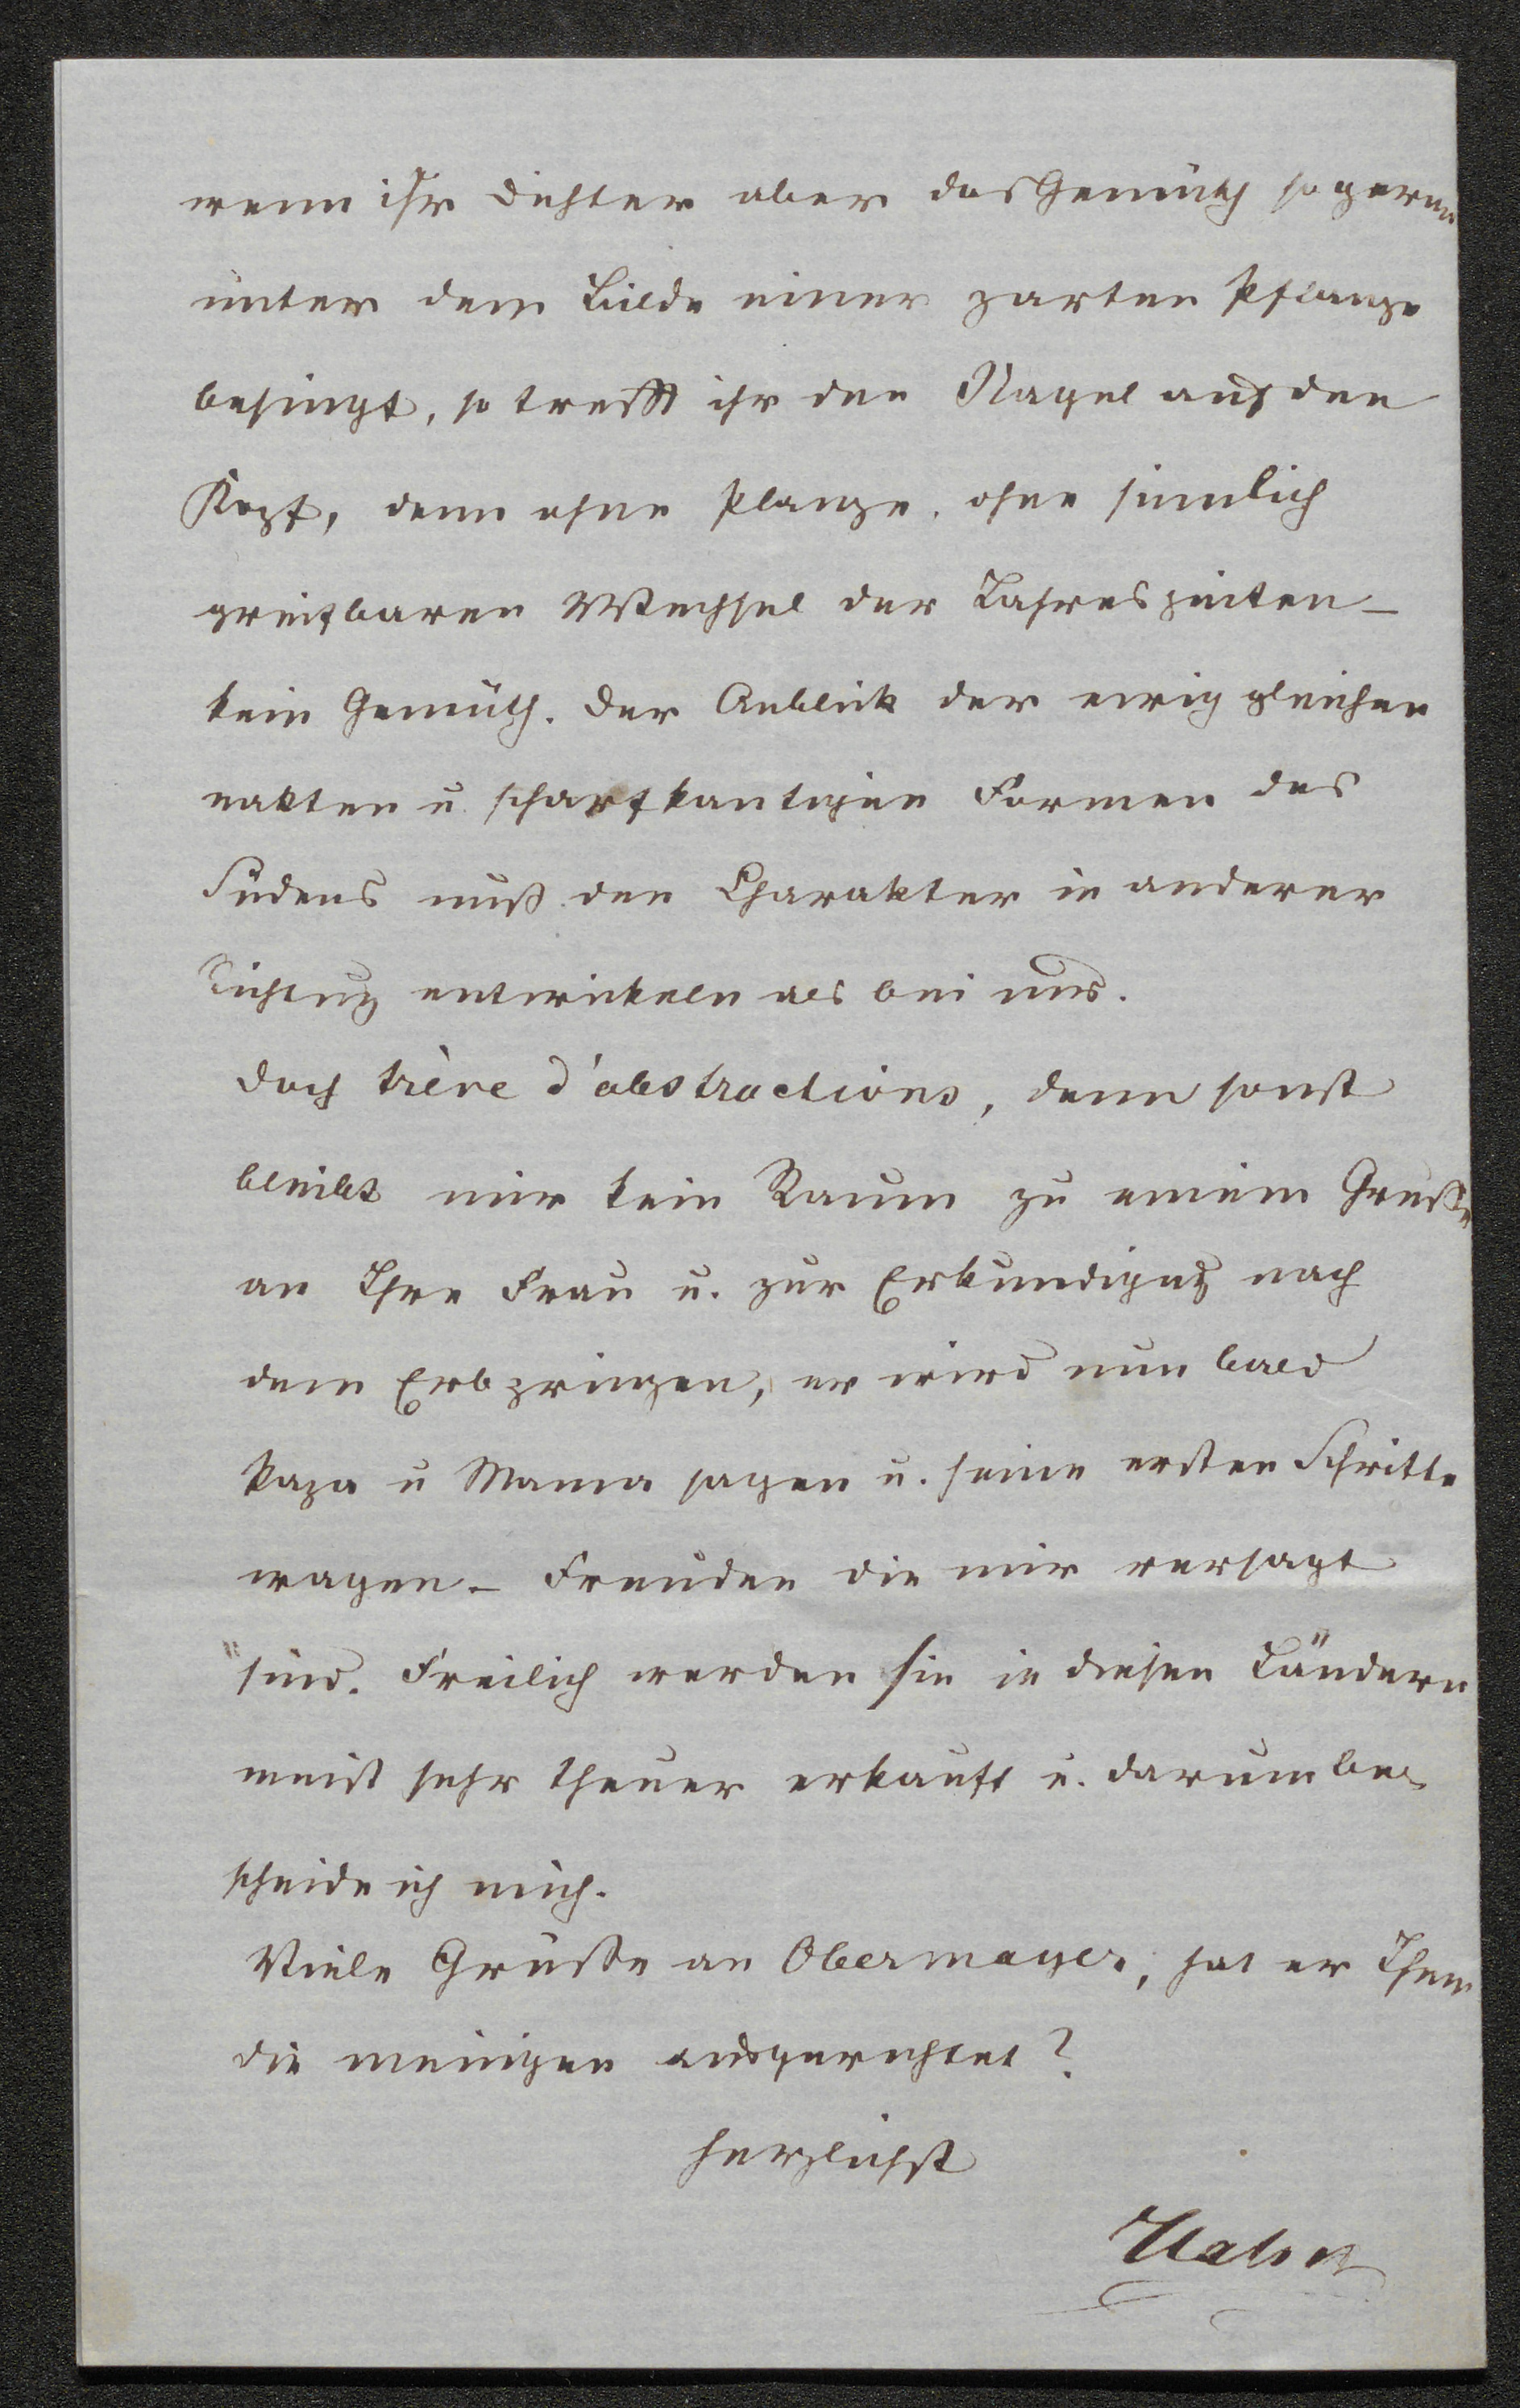 wenn ihr Dichter aber das Gemüth so gerne
unter dem Bilde einer zarten Pflanze
besingt, so trefft ihr den Nagel auf den
Kopf, denn ohne Planze, ohne sinnlich
greifbaren Wechsel der Jahreszeiten –
kein Gemüth. Der Anblick der ewig gleichen
nakten u scharfkantigen Formen des
Südens muß den Charakter in anderer
Richtung entwickeln als bei uns.
Doch trève d'abstractions, denn sonst
bleibt mir kein Raum zu einem Gruße
an Ihre Frau u. zur Erkundigung nach
dem Erbprinzen, er wird nun bald
Papa u Mama sagen u. seine ersten Schritte
wagen – Freuden die mir versagt
sind. Freilich werden sie in diesen Ländern
meist sehr theuer erkauft u. darum be-
scheide ich mich.
Viele Grüße an Obermayer, hat er Ihnen
die meinigen ausgerichtet?
herzlichst
Hahn